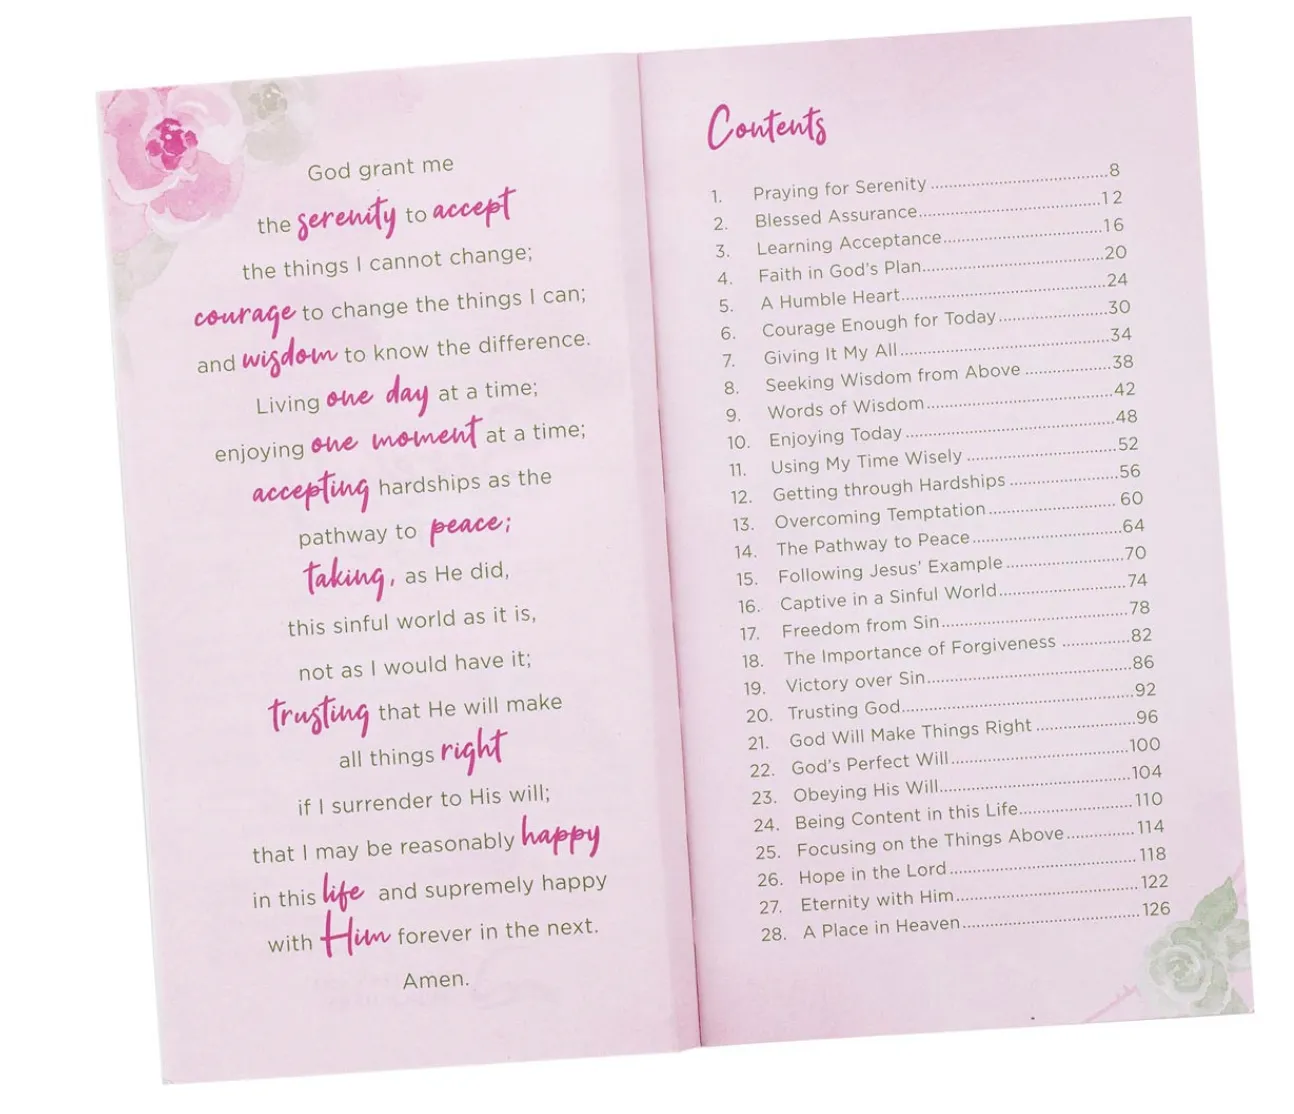 God grant me
the serenity to accept
the things I cannot change;
courage to change the things I can;
and wisdom to know the difference.
Living one day at a time;
enjoying one moment at a time;
accepting hardships as the
pathway to peace;
taking, as He did,
this sinful world as it is,
not as I would have it;
trusting that He will make
all things right
if I surrender to His will;
that I may be reasonably happy
in this life and supremely happy
with Him forever in the next.
Amen.
Contents
1. Praying for Serenity ........................................8
2. Blessed Assurance........................................12
3. Learning Acceptance...................................16
4. Faith in God's Plan.......................................20
5. A Humble Heart............................................24
6. Courage Enough for Today........................30
7. Giving It My All..............................................34
8. Seeking Wisdom from Above ...................38
9. Words of Wisdom.........................................42
10. Enjoying Today .............................................48
11. Using My Time Wisely .................................52
12. Getting through Hardships ........................56
13. Overcoming Temptation............................. 60
14. The Pathway to Peace.................................64
15. Following Jesus' Example ..........................70
16. Captive in a Sinful World............................74
17. Freedom from Sin.........................................78
18. The Importance of Forgiveness ...............82
19. Victory over Sin............................................86
20. Trusting God..................................................92
21. God Will Make Things Right ......................96
22. God's Perfect Will.......................................100
23. Obeying His Will..........................................104
24. Being Content in this Life.........................110
25. Focusing on the Things Above................114
26. Hope in the Lord.........................................118
27. Eternity with Him........................................122
28. A Place in Heaven.......................................126